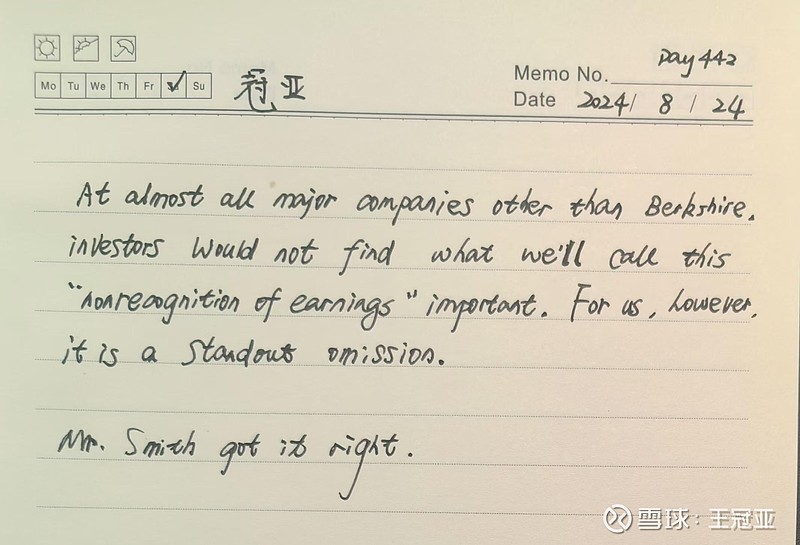 Mo Tu We Th Fr Sa Su
冠亚
Memo No. Day 442
Date 2024/ 8 / 24
At almost all major companies other than Berkshire,
investors would not find what we'll call this
"nonrecognition of earnings" important. For us, however,
it is a standout omission.
Mr. Smith got it right.
雪球：王冠亚